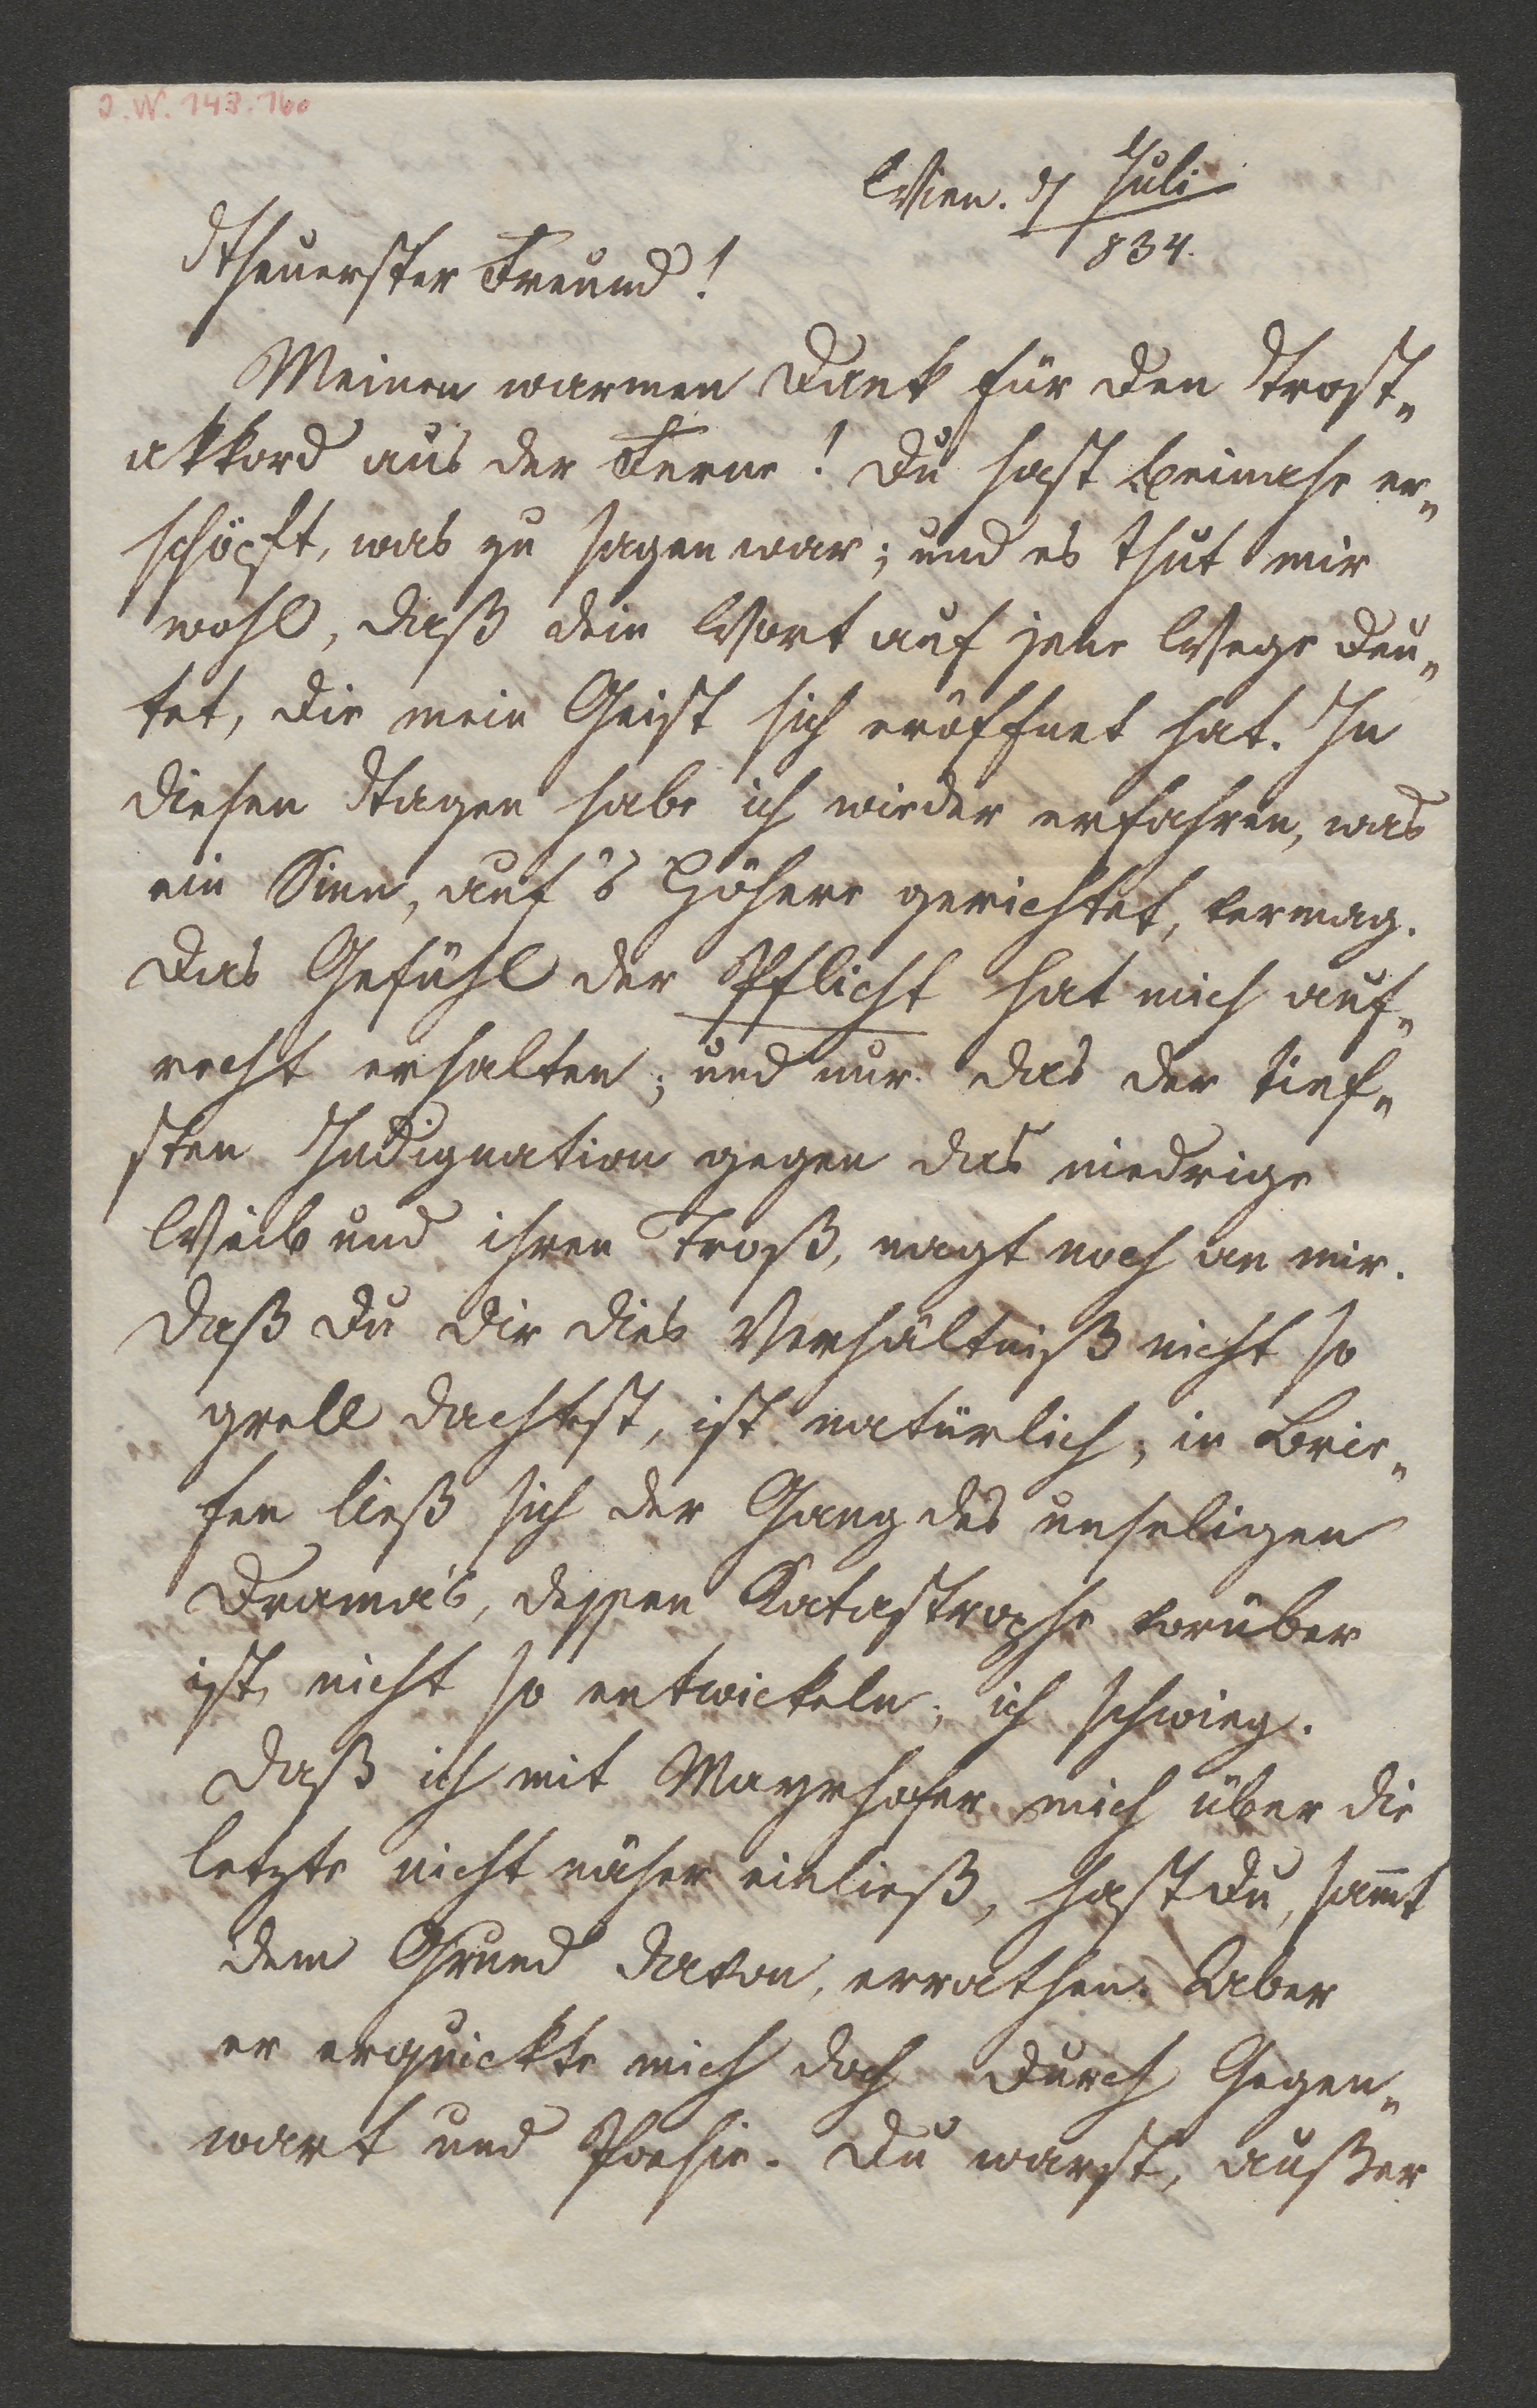 J. N. 143.160
Wien. 7/ Juli
834.
Theuerster Freund!
Meinen warmen Dank für den Trost-
akkord aus der Ferne! Du hast beinahe er-
schöpft, was zu sagen war; und es thut mir
wohl, daß dein Wort auf jene Wege deu-
tet, die mein Geist sich eröffnet hat. In
diesen Tagen habe ich wieder erfahren, was
ein Sinn, auf's Höhere gerichtet, vermag.
Das Gefühl der Pflicht hat mich auf-
recht erhalten; und nur das der tief-
sten Indignation gegen das niedrige
Weib und ihren Troß, nagt noch an mir.
Daß du dir dies Verhältniß nicht so
grell dachtest, ist natürlich; in Brie-
fen ließ sich der Gang des unseligen
Drama's, dessen Katastrophe vorüber
ist, nicht so entwickeln; ich schwieg.
Daß ich mit Mayrhofer mich über die
letzte nicht näher einließ, hast du, sam̅t
dem Grund davon, errathen. Aber
er erquickte mich doch durch Gegen-
wart und Poesie. Du warst, außer